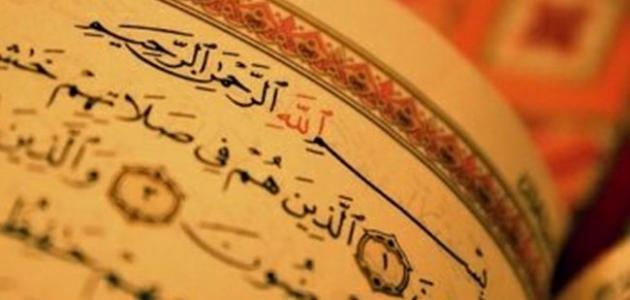 بِسْمِ ٱللَّهِ ٱلرَّحْمَٰنِ ٱلرَّحِيمِ
١ ٱلَّذِينَ هُمْ فِي صَلَاتِهِمْ خَٰشِ
ضُونَ ٣ وَٱلَّذِينَ